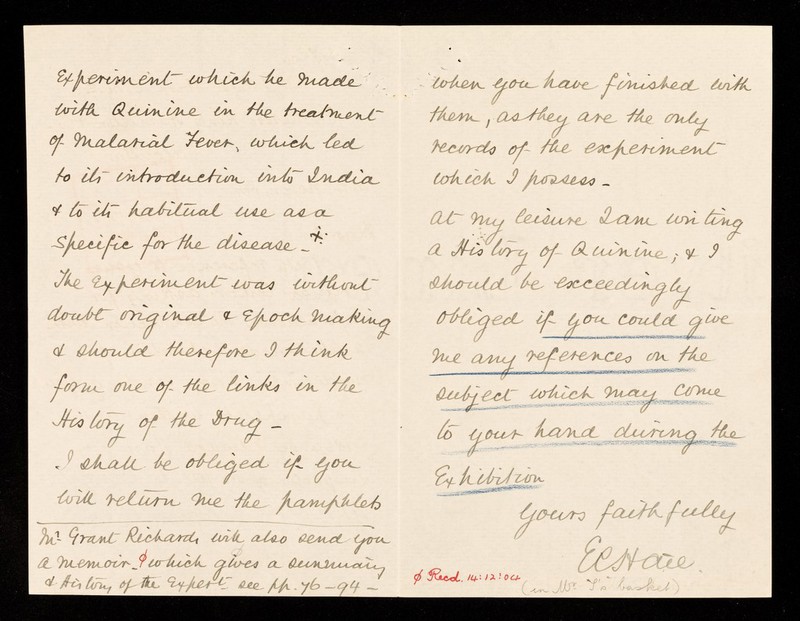 Experiment which he made
with Quinine in the treatment
of Malarial Fever, which led
to its introduction into India
& to its habitual use as a
Specific for the disease _
The Experiment was without
doubt original & Epoch Making
& should therefore I think
form one of the links in the
History of the Drug _
I shall be obliged if you
will return me the pamphlets
Mr. Grant Richards will also send you
a memoir _ φ which gives a summary
& History of the Expert. see pp. 76-94 _
when you have finished with
them, as they are the only
records of the experiment
which I possess _
at my leisure I am writing
a History of Quinine; & I
should be exceedingly
obliged if you could give
me any references on the
subject which may come
to your hand during the
Exhibition
Yours faithfully
E C Hare.
φ Recd. 14:12:04
(in Mr. T's basket)